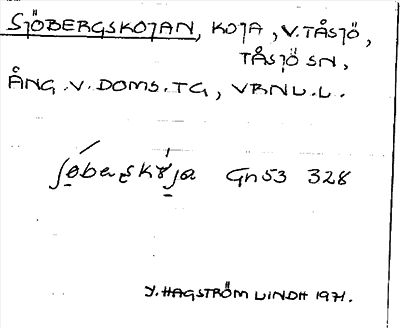 SJÖBERGSKOJAN, KOJA, V. TÅSJÖ,
TÅSJÖ SN,
ÅNG. V. DOMS. TG, VRNL.L.
Gn53 328
Y. HAGSTRÖM LINDH 1971.